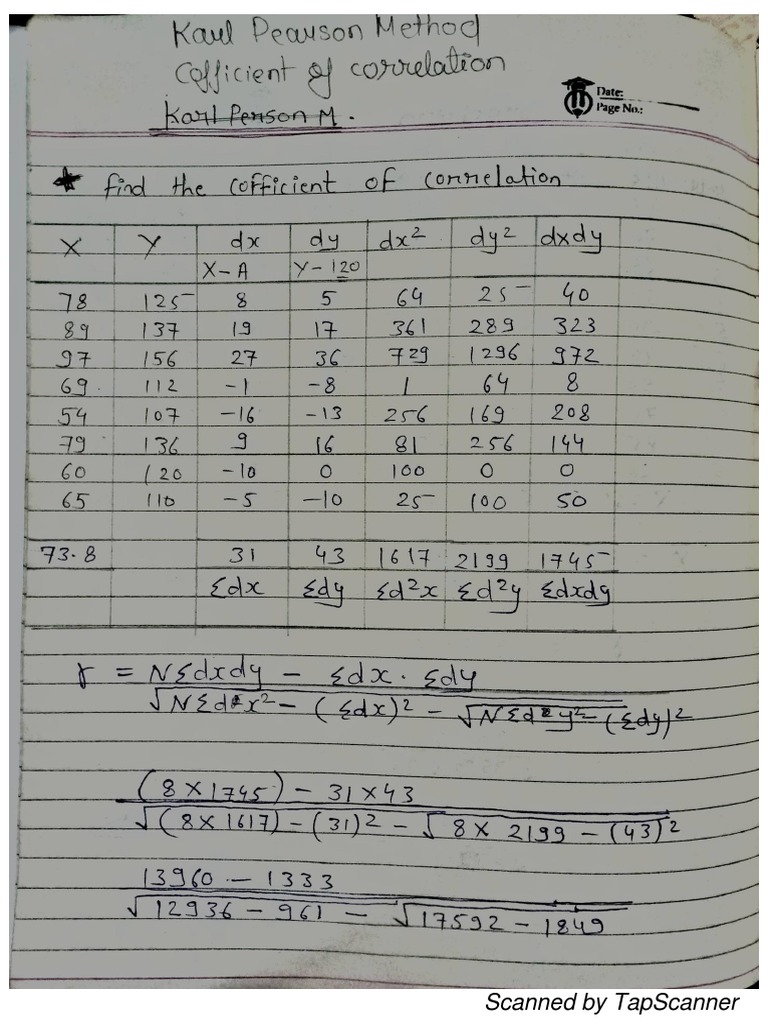 Karl Pearson Method
Cofficient of correlation
Karl Person M.
Date:
Page No.:
★ find the cofficient of correlation
X Y dx dy dx² dy² dxdy
X-A Y-120
78 125 8 5 64 25 40
89 137 19 17 361 289 323
97 156 27 36 729 1296 972
69 112 -1 -8 1 64 8
54 107 -16 -13 256 169 208
79 136 9 16 81 256 144
60 120 -10 0 100 0 0
65 110 -5 -10 25 100 50
73.8 31 43 1617 2199 1745
Σdx Σdy Σd²x Σd²y Σdxdy
r = NΣdxdy - Σdx . Σdy
√NΣd²x² - (Σdx)² - √NΣd²y² - (Σdy)²
(8×1745) - 31×43
√(8×1617) - (31)² - √8× 2199 - (43)²
13960 - 1333
√12936 - 961 - √17592 - 1849
Scanned by TapScanner